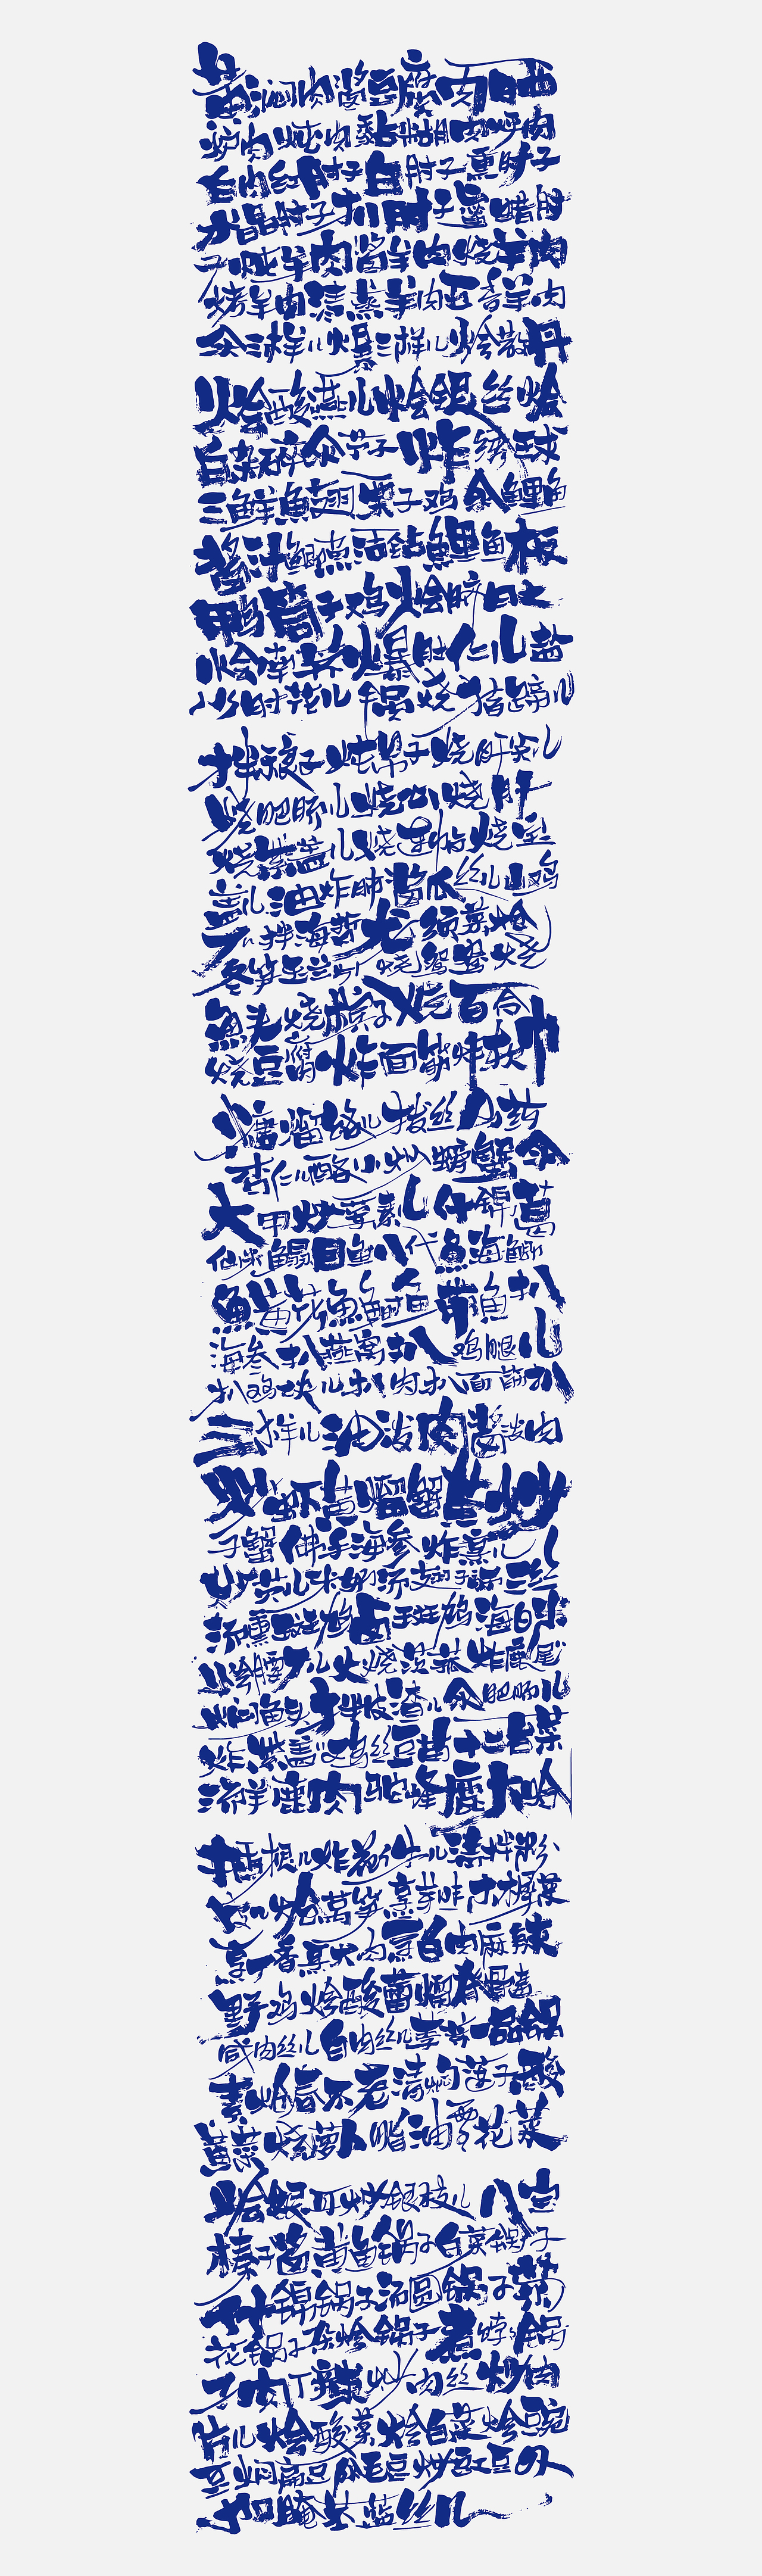 黄焖肉酱豆腐肉晒
炉肉炖肉黏糊肉烀肉
白肉红肘子白肘子熏肘子
水晶肘子扒肘子蜜蜡肘
子炖羊肉酱羊肉烧羊肉
烤羊肉清蒸羊肉五香羊肉
氽三样儿爆三样儿烩散丹
烩酸燕儿烩银丝烩
白杂碎氽节子炸绣球
三鲜鱼翅栗子鸡氽鲤鱼
酱汁鲫鱼活钻鲤鱼板
鸭筒子鸡烩脐
烩南荠爆肚仁儿盐
水肘花儿锅烧猪蹄儿
拌稂子炖吊子烧肝尖儿
烧肥肠儿烧心烧肝
烧紫盖儿烧连帖烧宝
盖儿油炸肺酱瓜丝儿山鸡
丁儿拌海蜇龙须菜炝
冬笋玉兰片烧鸳鸯烧
鱼头烧槟子烧百合
烧豆腐炸面筋炸软巾
糖熘饹儿拔丝山药
杏仁儿酪小炒螃蟹氽
大甲炒荤素儿什锦葛
仙米鳎目鱼八代鱼海鲫
鱼黄花鱼鲥鱼带鱼扒
海参扒燕窝扒鸡腿儿
扒鸡块儿扒肉扒面筋扒
三样儿油泼肉酱泼肉
炒虾黄熘蟹黄炒
子蟹佛手海参炸烹儿
炒芡儿米奶汤翅子汤三丝
汤熏斑鸠卤斑鸠海白米
烩腰丁儿火烧茨菰炸鹿尾
焖鱼头拌皮渣儿氽肥肠儿
炸紫盖鸡丝豆苗十二台菜
汤羊鹿肉驼峰鹿大哈
插根儿炸花件儿清拌粉
皮儿炝莴笋烹芽韭木樨菜
烹丁香烹大肉烹白肉麻辣
野鸡烩酸蕾熘脊髓
咸肉丝儿白肉丝儿荸荠一品锅
素炝春不老清焖莲子酸
黄菜烧萝卜脂油雪花菜
烩银耳炒银枝儿八宝
榛子酱黄鱼锅子白菜锅子
什锦锅子汤圆锅子菊
花锅子杂烩锅子煮饽饽锅
子肉丁辣炒肉丝炒肉
片儿烩酸菜烩白菜烩豌
豆焖扁豆氽毛豆炒豇豆外
加腌苤蓝丝儿